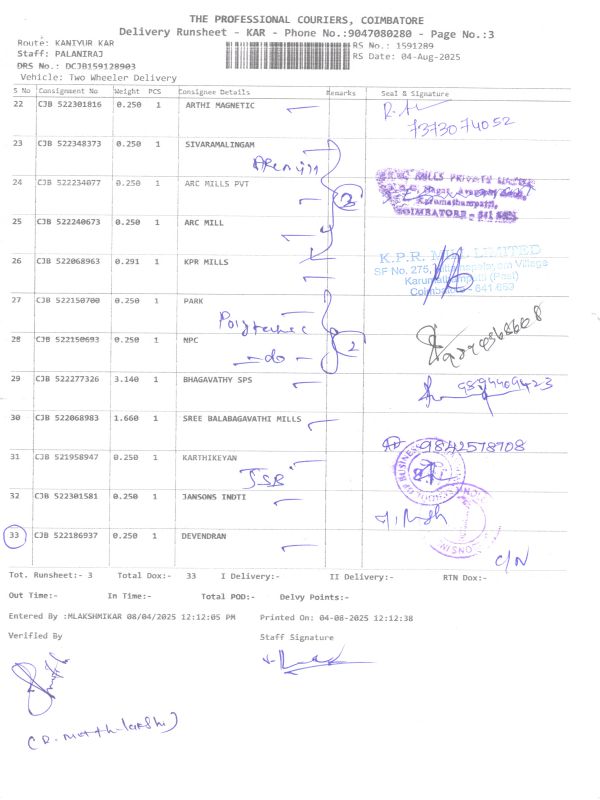 THE PROFESSIONAL COURIERS, COIMBATORE
Delivery Runsheet - KAR - Phone No.:9047080280 - Page No.:3
Route: KANIYUR KAR
RS No.: 1591289
Staff: PALANIRAJ
RS Date: 04-Aug-2025
DRS No.: DCJB159128903
Vehicle: Two Wheeler Delivery
S No Consignment No Weight PCS Consignee Details Remarks Seal & Signature
22 CJB 522301816 0.250 1 ARTHI MAGNETIC
7373074052
23 CJB 522348373 0.250 1 SIVARAMALINGAM
24 CJB 522234077 0.250 1 ARC MILLS PVT
3
MILLS PRIVATE
Karumathampatti,
COIMBATORE - 641
25 CJB 522240673 0.250 1 ARC MILL
26 CJB 522068963 0.291 1 KPR MILLS
K.P.R. MILL LIMITED
SF No. 275, Village
Coimbatore - 641 659
27 CJB 522150700 0.250 1 PARK
28 CJB 522150693 0.250 1 NPC
-do-
2
29 CJB 522277326 3.140 1 BHAGAVATHY SPS
9894409423
30 CJB 522068983 1.660 1 SREE BALABAGAVATHI MILLS
9842578708
31 CJB 521958947 0.250 1 KARTHIKEYAN
JSB
32 CJB 522301581 0.250 1 JANSONS INDTI
33 CJB 522186937 0.250 1 DEVENDRAN
C/N
Tot. Runsheet:- 3 Total Dox:- 33 I Delivery:- II Delivery:- RTN Dox:-
Out Time:- In Time:- Total POD:- Delvy Points:-
Entered By :MLAKSHMIKAR 08/04/2025 12:12:05 PM Printed On: 04-08-2025 12:12:38
Verified By Staff Signature